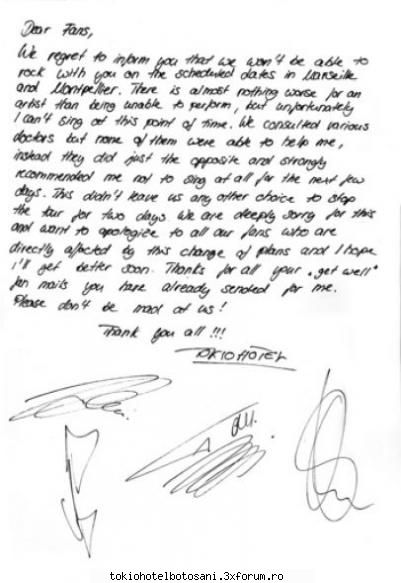 Dear Fans,
We regret to inform you that we won't be able to
rock with you on the scheduled dates in Marseille
and Montpellier. There is almost nothing worse for an
artist than being unable to perform, but unfortunately
I can't sing at this point of time. We consulted various
doctors but none of them were able to help me,
instead they did just the opposite and strongly
recommended me not to sing at all for the next few
days. This didn't leave us any other choice to stop
the tour for two days. We are deeply sorry for this
and want to apologize to all our fans who are
directly affected by this change of plans and I hope
I'll get better soon. Thanks for all your "get well"
fan mails you have already sended for me.
Please don't be mad at us!
Thank you all !!!
TOKIO HOTEL
tokiohotelbotosani.3xforum.ro